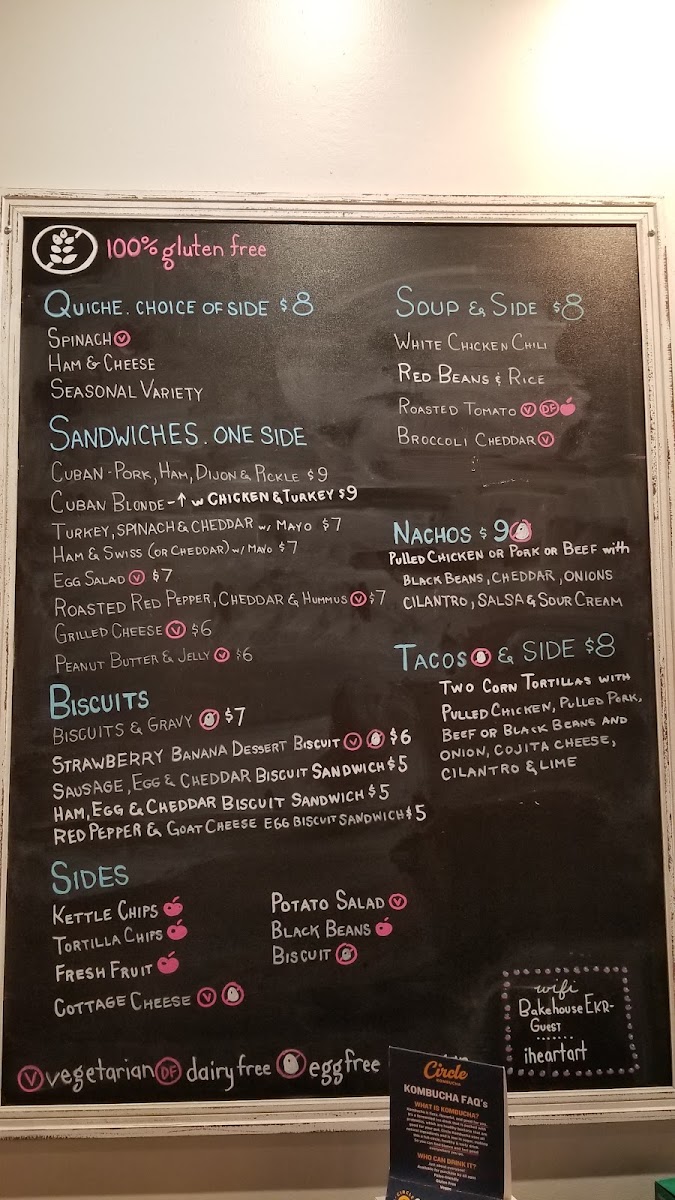 100% gluten free
QUICHE. CHOICE OF SIDE $8
SPINACH V
HAM & CHEESE
SEASONAL VARIETY
SANDWICHES. ONE SIDE
CUBAN-PORK, HAM, DIJON & PICKLE $9
CUBAN BLONDE-↑ w CHICKEN & TURKEY $9
TURKEY, SPINACH & CHEDDAR w/ MAYO $7
HAM & SWISS (OR CHEDDAR) w/ MAYO $7
EGG SALAD V $7
ROASTED RED PEPPER, CHEDDAR & HUMMUS V $7
GRILLED CHEESE V $6
PEANUT BUTTER & JELLY V $6
BISCUITS
BISCUITS & GRAVY $7
STRAWBERRY BANANA DESSERT BISCUIT V $6
SAUSAGE, EGG & CHEDDAR BISCUIT SANDWICH $5
HAM, EGG & CHEDDAR BISCUIT SANDWICH $5
RED PEPPER & GOAT CHEESE EGG BISCUIT SANDWICH $5
SIDES
KETTLE CHIPS
TORTILLA CHIPS
FRESH FRUIT
COTTAGE CHEESE V
POTATO SALAD V
BLACK BEANS
BISCUIT
SOUP & SIDE $8
WHITE CHICKEN CHILI
RED BEANS & RICE
ROASTED TOMATO V DF
BROCCOLI CHEDDAR V
NACHOS $9
PULLED CHICKEN OR PORK OR BEEF with
BLACK BEANS, CHEDDAR, ONIONS
CILANTRO, SALSA & SOUR CREAM
TACOS & SIDE $8
TWO CORN TORTILLAS WITH
PULLED CHICKEN, PULLED PORK,
BEEF OR BLACK BEANS AND
ONION, COJITA CHEESE,
CILANTRO & LIME
wifi
Bakehouse EKR-
GUEST
iheartart
V vegetarian DF dairy free egg free
Circle
KOMBUCHA
KOMBUCHA FAQ's
WHAT IS KOMBUCHA?
WHO CAN DRINK IT?
Gluten Free
Vegan